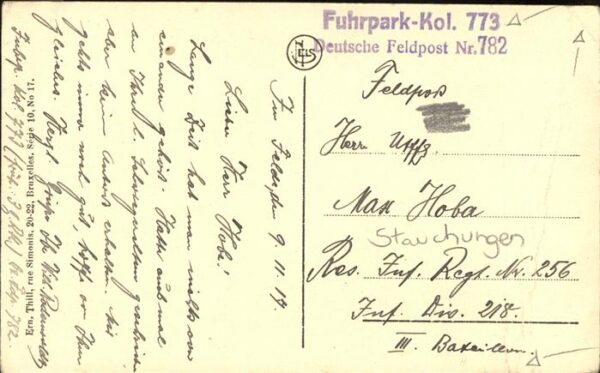 Fuhrpark-Kol. 773
Deutsche Feldpost Nr. 782
Feldpost
Herrn Utffz.
Max Hoba
Stauchungen
Res. Inf. Regt. Nr. 256
Inf. Div. 218.
III. Bataillon.
Im Felde, den 9. 11. 17.
Lieber Herr Hoba!
Lange Zeit hat man nichts von
einander gehört. Hatte auch mal
an Ihre
aber keine Antwort erhalten. Mir
geht's immer noch gut, hoffe von Ihnen
gleiches. Herzl. Grüße Ihr
Ern. Thill, rue Simonis, 20-22, Bruxelles. Série 10, No 17.
782